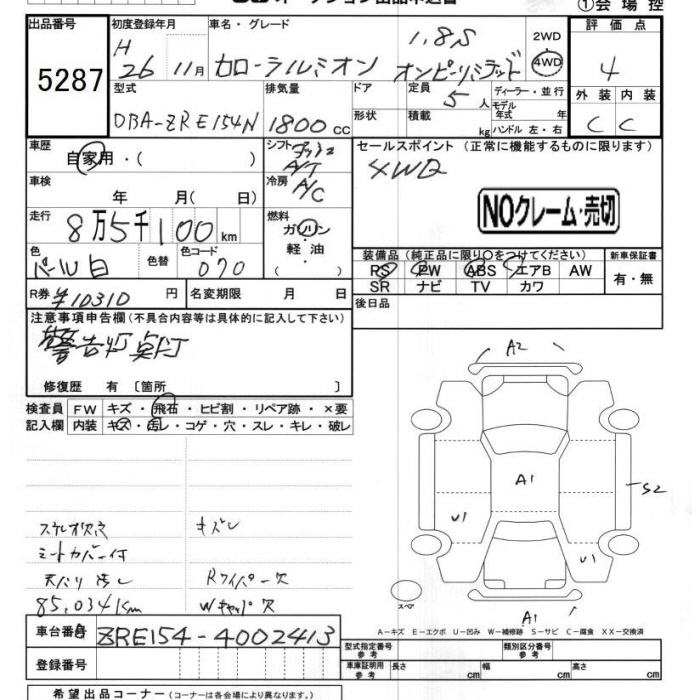 ①会場控
出品番号
5287
初度登録年月
H 26 11月
車名・グレード
カローラルミオン
1.8S
オンビーリミテッド
2WD
4WD
評価点
4
外装 内装
C C
型式
DBA-ZRE154N
排気量
1800cc
ドア
形状
定員
5人
積載
kg
ディーラー・並行
モデル年式 年式
ハンドル 左・右
車歴
自家用・( )
シフト
A/T
冷房
A/C
車検
年 月( 日)
走行
8万5千100km
燃料
ガソリン
軽油
( )
色
パール白
色替
色コード
070
R券
¥10310円
名変期限 月 日
セールスポイント(正常に機能するものに限ります)
4WD
NOクレーム・売切
装備品(純正品に限り○をつけてください)
PS PW ABS エアB AW
SR ナビ TV カワ
新車保証書
有・無
後日品
注意事項申告欄(不具合内容等は具体的に記入して下さい)
警告灯点灯
修復歴 有〔箇所 〕
検査員記入欄
FW キズ・飛石・ヒビ割・リペア跡・×要
内装 キズ・汚レ・コゲ・穴・スレ・キレ・破レ
キズレ
シートカバー付
天バリ汚レ
Rワイパー欠
85,034km
Wキャップ欠
A2
A1
S2
U1
U1
スペア
A1
A−キズ E−エクボ U−凹み W−補修跡 S−サビ C−腐食 XX−交換済
車台番号
ZRE154-4002413
登録番号
型式指定番号 参考
類別区分番号 参考
車庫証明用 参考
長さ cm
幅 cm
高さ cm
希望出品コーナー(コーナーは各会場により異なります。)